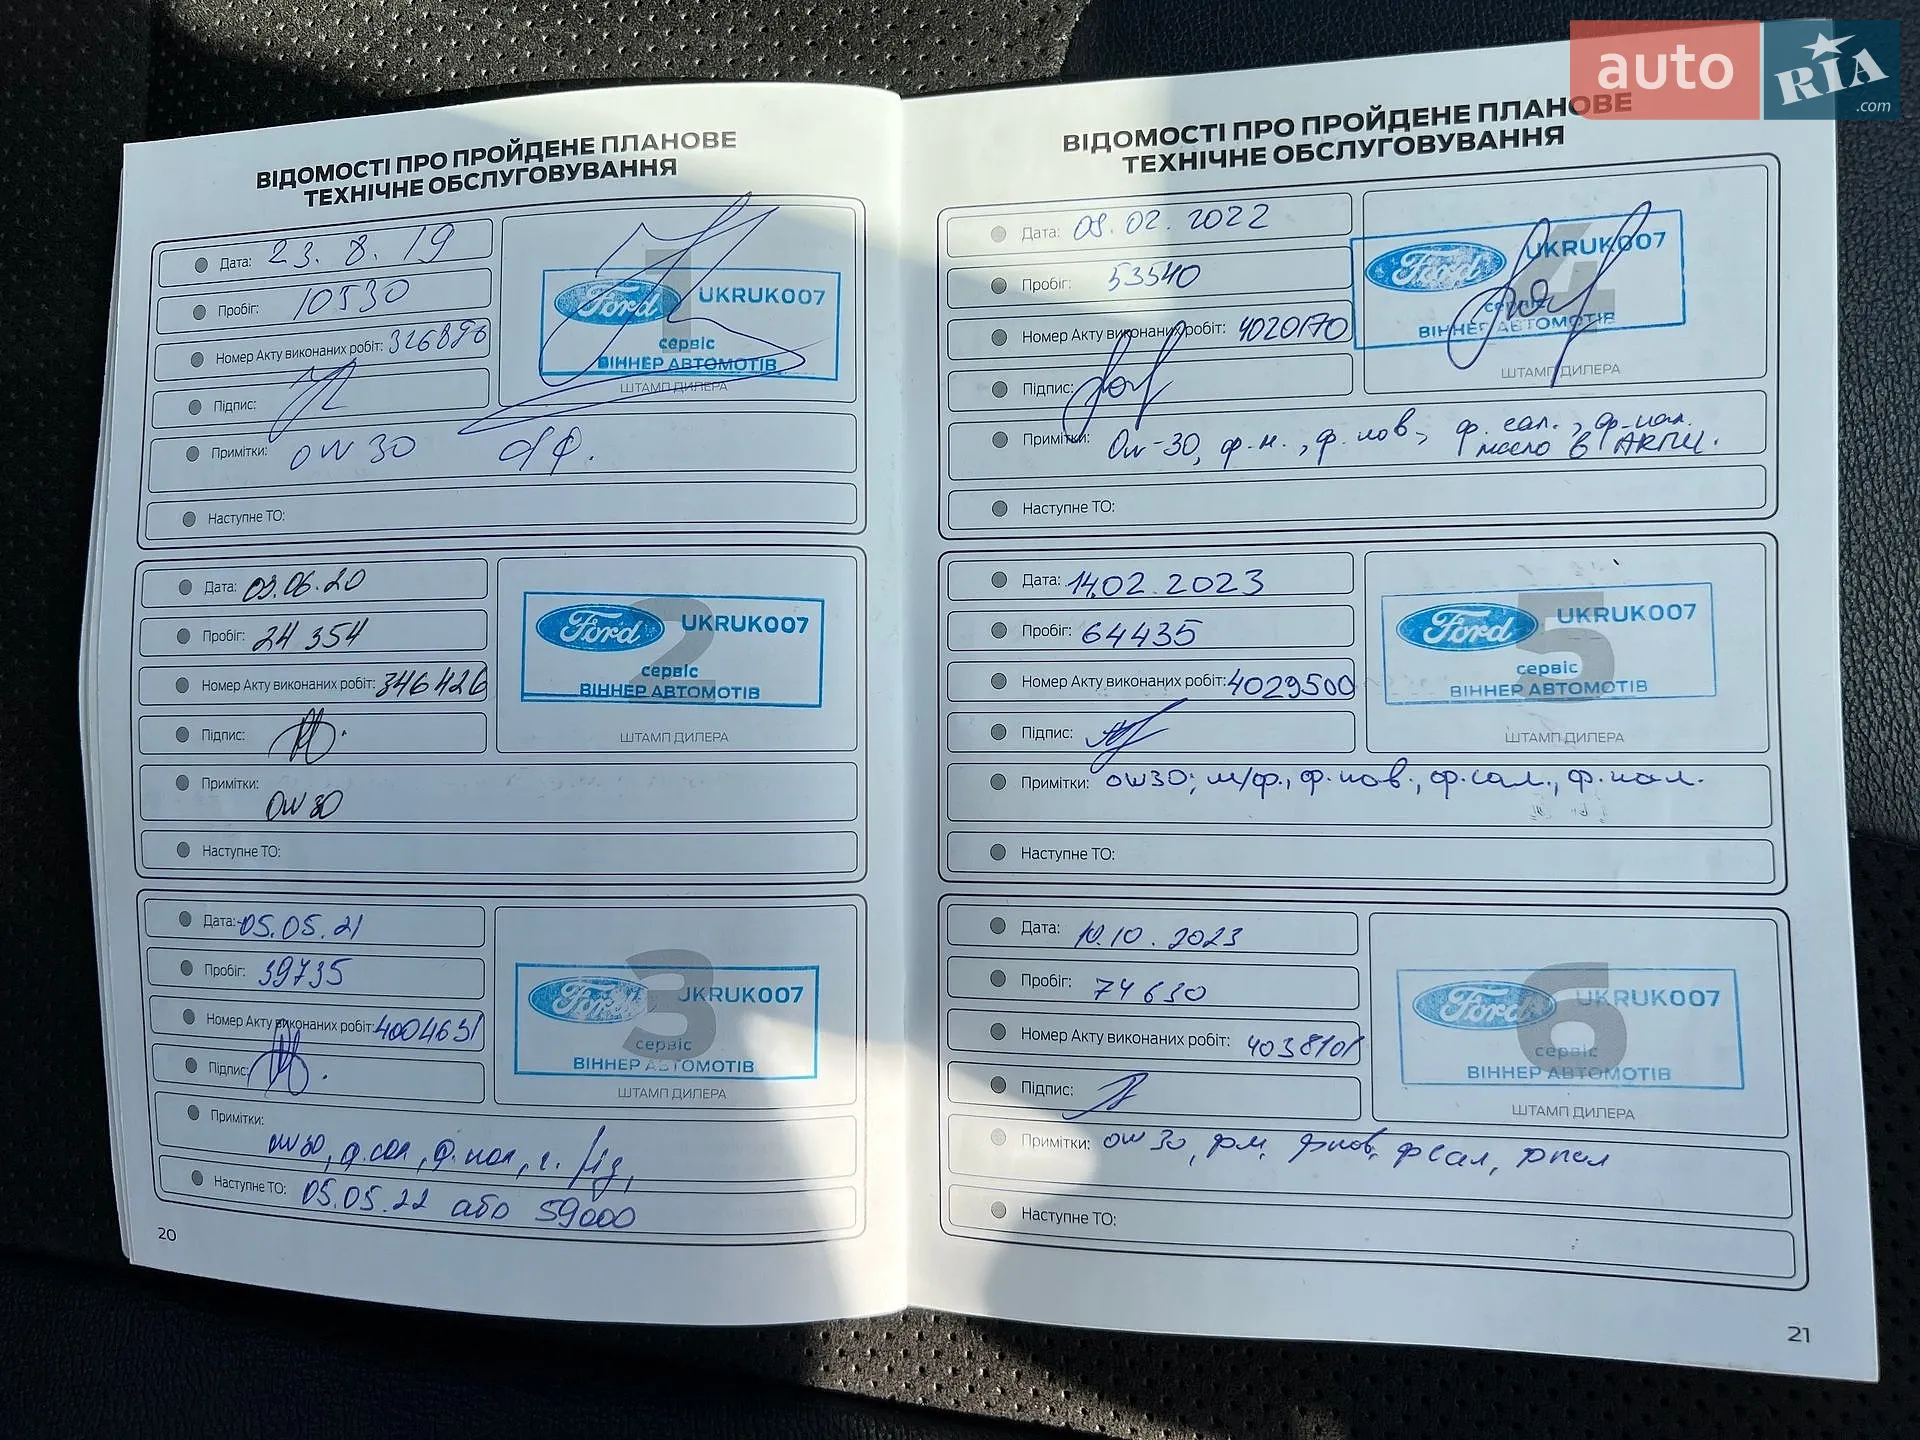 auto RIA.com
ВІДОМОСТІ ПРО ПРОЙДЕНЕ ПЛАНОВЕ
ТЕХНІЧНЕ ОБСЛУГОВУВАННЯ
Дата: 23.8.19
Пробіг: 10530
Номер Акту виконаних робіт: 326896
Підпис:
1
Ford UKRUK007
сервіс
ВІННЕР АВТОМОТІВ
ШТАМП ДИЛЕРА
Примітки: 0W30
Наступне ТО:
Дата: 09.06.20
Пробіг: 24 354
Номер Акту виконаних робіт: 346426
Підпис:
2
Ford UKRUK007
сервіс
ВІННЕР АВТОМОТІВ
ШТАМП ДИЛЕРА
Примітки:
0W30
Наступне ТО:
Дата: 05.05.21
Пробіг: 39735
Номер Акту виконаних робіт: 4004631
Підпис:
3
Ford UKRUK007
сервіс
ВІННЕР АВТОМОТІВ
ШТАМП ДИЛЕРА
Примітки:
0W30, ф.сал, ф.пал,
Наступне ТО: 05.05.22 або 59000
20
ВІДОМОСТІ ПРО ПРОЙДЕНЕ ПЛАНОВЕ
ТЕХНІЧНЕ ОБСЛУГОВУВАННЯ
Дата: 09.02.2022
Пробіг: 53540
Номер Акту виконаних робіт: 4020170
Підпис:
4
Ford UKRUK007
сервіс
ВІННЕР АВТОМОТІВ
ШТАМП ДИЛЕРА
Примітки: 0w-30, ф.м., ф.пов., ф.сал., ф.пал.
масло в АКПП.
Наступне ТО:
Дата: 14.02.2023
Пробіг: 64435
Номер Акту виконаних робіт: 4029500
Підпис:
5
Ford UKRUK007
сервіс
ВІННЕР АВТОМОТІВ
ШТАМП ДИЛЕРА
Примітки: 0W30; м/ф., ф.пов., ф.сал., ф.пал.
Наступне ТО:
Дата: 10.10.2023
Пробіг: 74 630
Номер Акту виконаних робіт: 4038101
Підпис:
6
Ford UKRUK007
сервіс
ВІННЕР АВТОМОТІВ
ШТАМП ДИЛЕРА
Примітки: 0W30, фм, фпов, фсал, фпал
Наступне ТО:
21